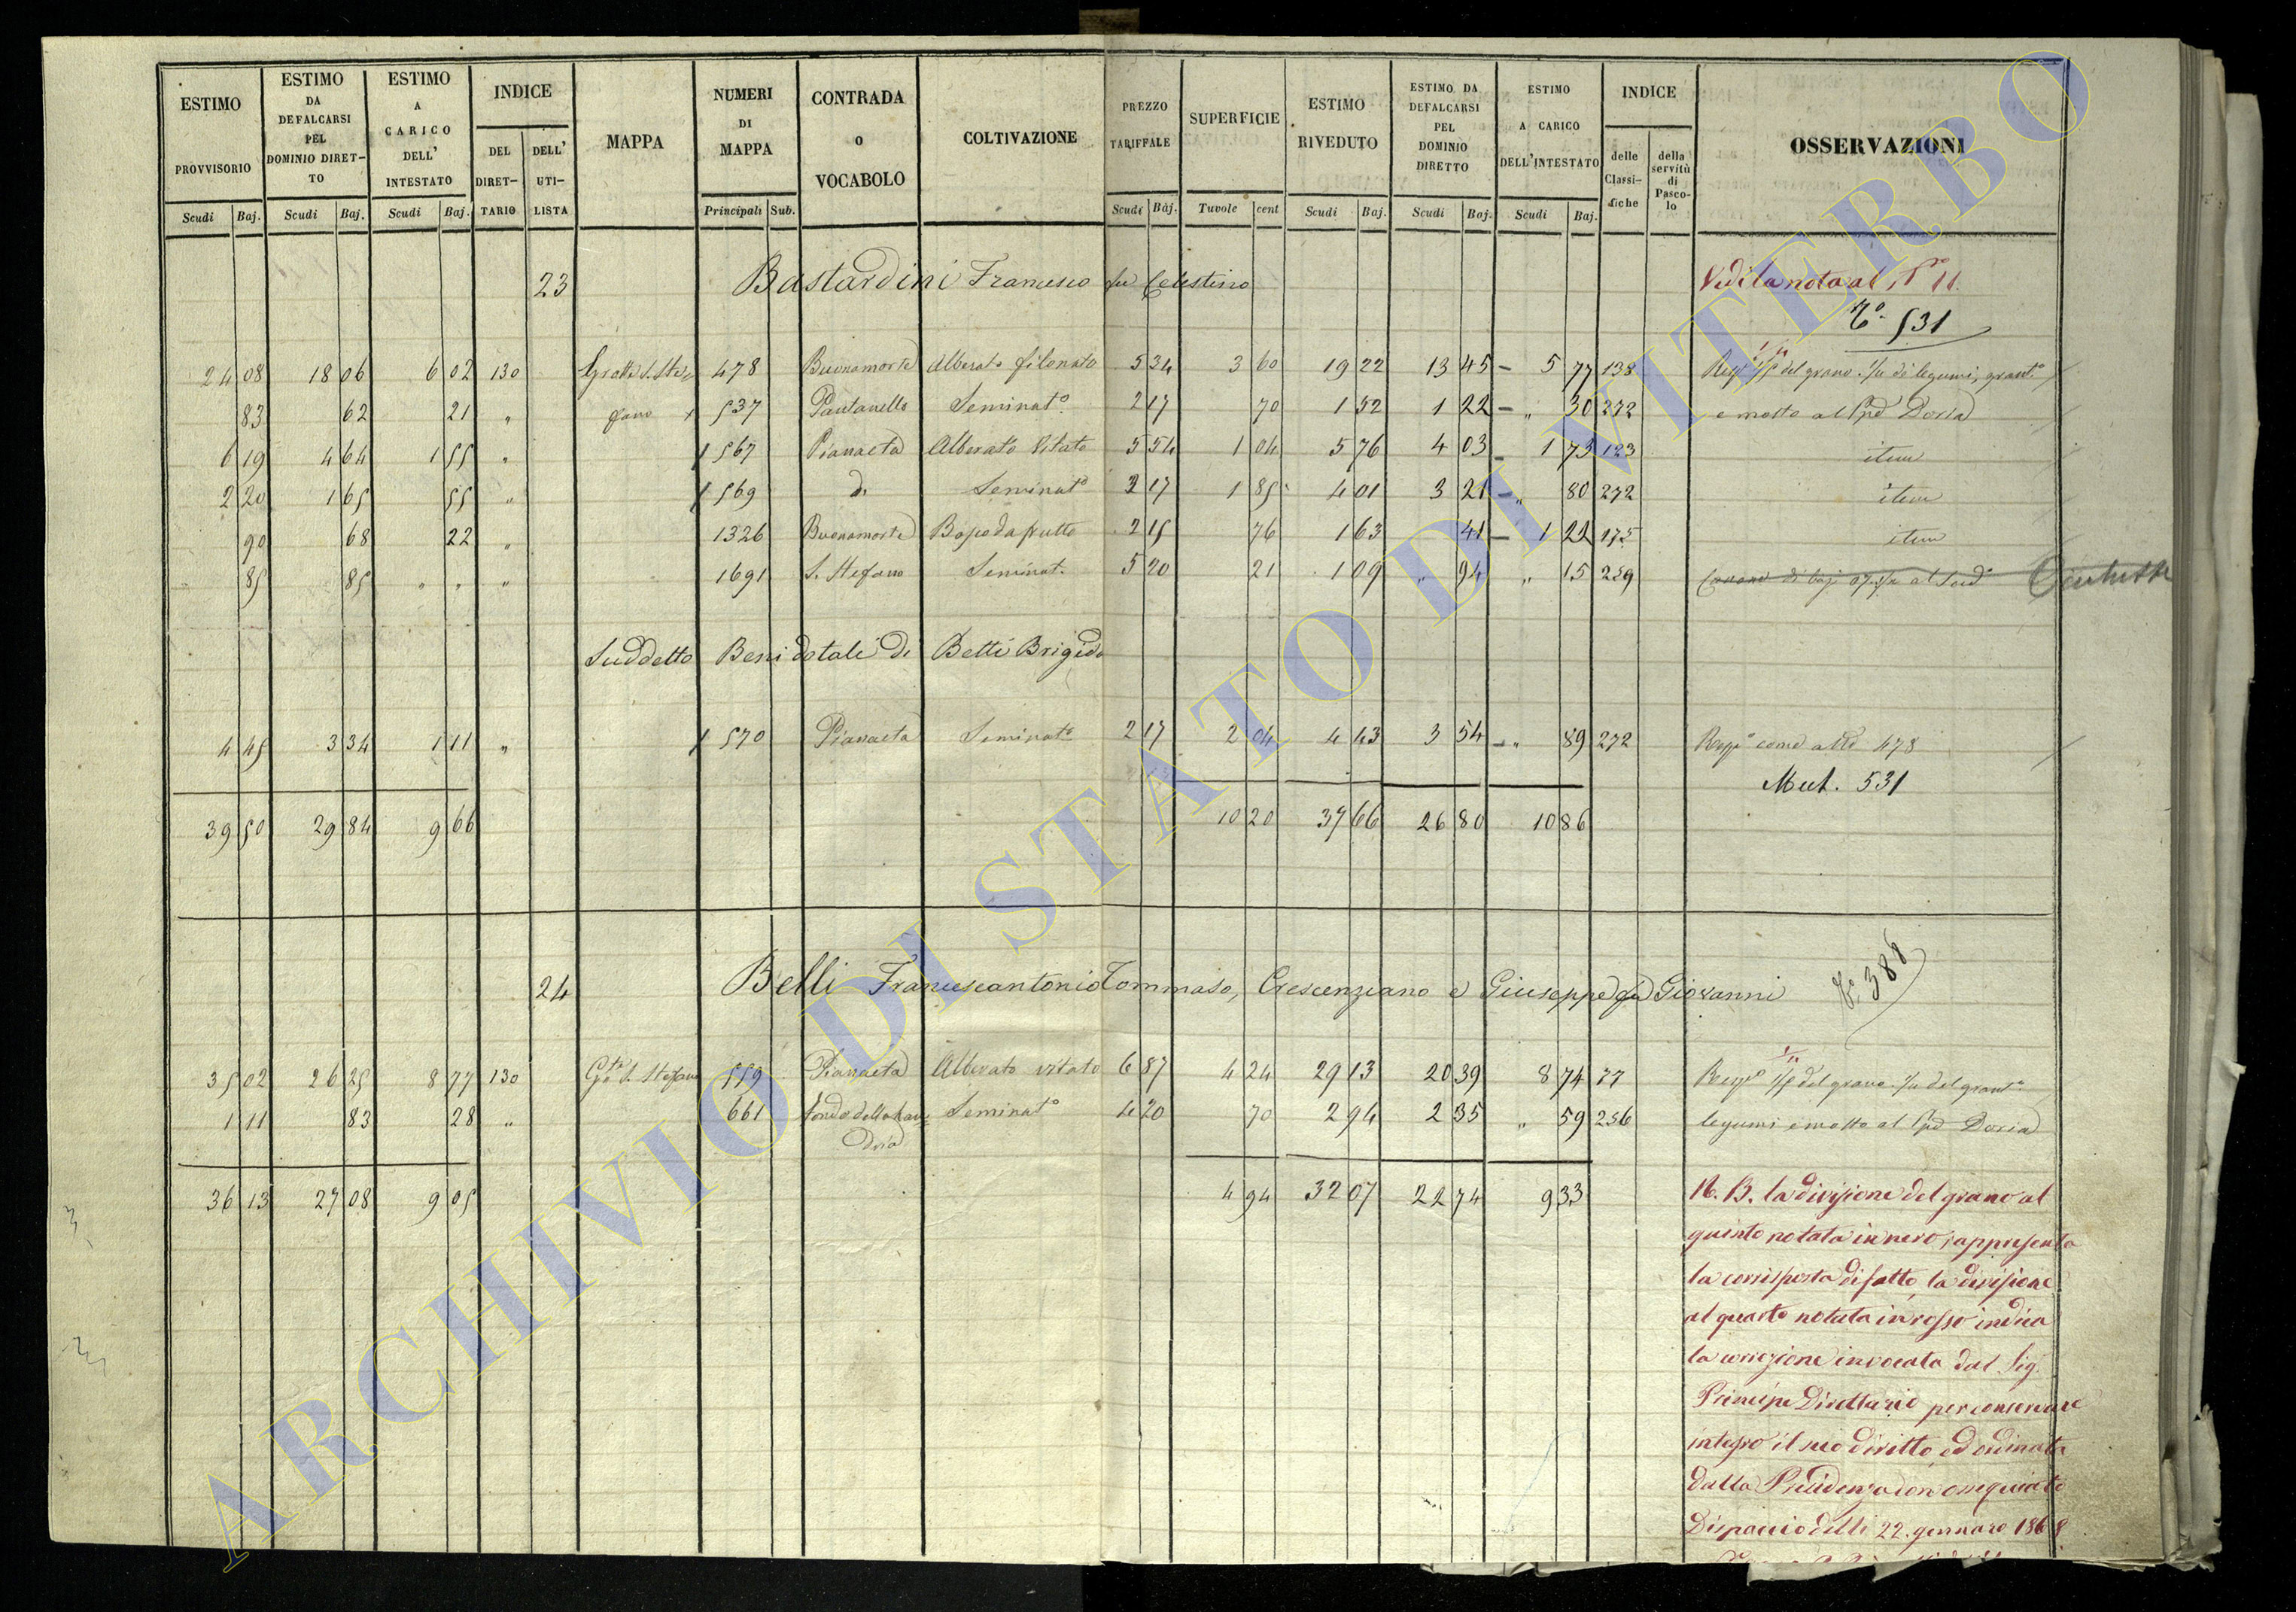 ESTIMO PROVVISORIO Scudi Baj.
ESTIMO DA DEFALCARSI PEL DOMINIO DIRET-TO Scudi Baj.
ESTIMO A CARICO DELL' INTESTATO Scudi Baj.
INDICE DEL DIRET-TARIO DELL' UTI-LISTA
MAPPA
NUMERI DI MAPPA Principali Sub.
CONTRADA o VOCABOLO
COLTIVAZIONE
PREZZO TARIFFALE Scudi Baj.
SUPERFICIE Tavole cent
ESTIMO RIVEDUTO Scudi Baj.
ESTIMO DA DEFALCARSI PEL DOMINIO DIRETTO Scudi Baj.
ESTIMO A CARICO DELL'INTESTATO Scudi Baj.
INDICE delle Classi-fiche della servitù di Pasco-lo
OSSERVAZIONI
23 Bastardini Francesco fu Celestino Vedi la nota al N° 11.
T° 531
24 08 18 06 6 02 130 Grotte S. Ste 478 Buonamorte Alberato filonato 5 34 3 60 19 22 13 45 - 5 77 138 del grano 1/4 di legumi,
83 62 21 " fano 537 Pantanello Seminat° 2 17 70 1 52 1 22 - " 30 272 e mosto al Doria
6 19 4 64 1 55 " 567 Pianaeta Alberato Vitato 5 54 1 04 5 76 4 03 - 1 73 123 item
2 20 1 65 55 " 569 d° Seminat° 2 17 1 85 4 01 3 21 - " 80 272 item
90 68 22 " 1326 Buonamorte Bosco da frutto 2 15 76 1 63 41 - 1 22 175 item
85 85 " " " 1691 S. Stefano Seminat. 5 20 21 1 09 " 94 " 15 259
Suddetto Beni dotali di Betti Brigida
4 45 3 34 1 11 " 570 Pianaeta Seminat° 2 17 2 04 4 43 3 54 - " 89 272 come alla 478
Mut. 531
39 50 29 84 9 66 10 20 37 66 26 80 10 86
24 Belli Francescantonio Tommaso, Crescenziano e Giuseppe fu Giovanni T. 386
35 02 26 25 8 77 130 Gte S. Stefano 559 Pianaeta Alberato vitato 6 87 4 24 29 13 20 39 8 74 77 1/5 del grano 1/4 del
1 11 83 28 " 661 Fondo della Man Seminat° 4 20 70 2 94 2 35 " 59 256 legumi e mosto al Doria
dria
36 13 27 08 9 05 4 94 32 07 22 74 9 33
N. B. la divisione del grano al
quinto notata in nero rappresenta
la corrisposta di fatto, la divisione
al quarto notata in rosso indica
la correzione invocata dal Sig.
Principe Direttario per conservare
integro il suo diritto, ed ordinata
dalla Presidenza con ossequiato
Dispaccio delli 22. gennaro 1868
ARCHIVIO DI STATO DI VITERBO